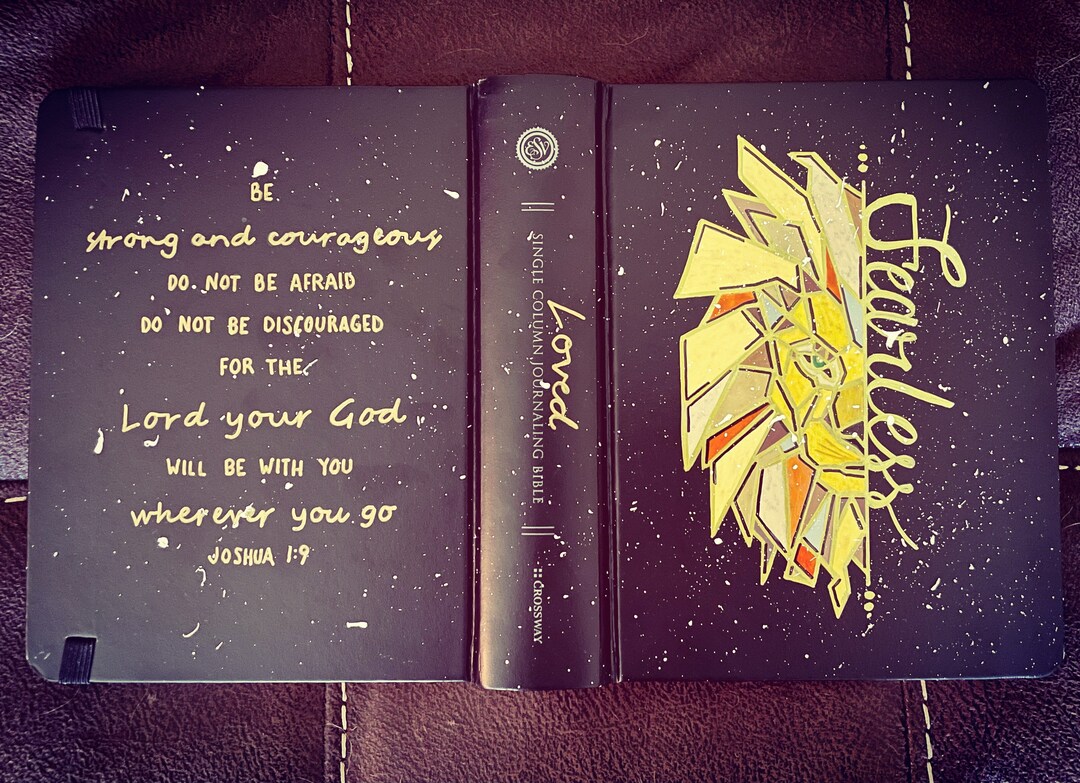 BE
strong and courageous
DO NOT BE AFRAID
DO NOT BE DISCOURAGED
FOR THE
Lord your God
WILL BE WITH YOU
wherever you go
JOSHUA 1:9
ESV
SINGLE COLUMN JOURNALING BIBLE
Loved
CROSSWAY
Fearless